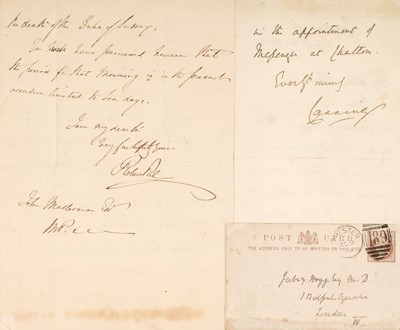 the death of the Duke of Sussex.
You have perceived however that
the period for that Mourning is in the present
occasion limited to ten days.
I am my dear Sir
Very faithfully yours
Robert Peel
John Masterman Esq
M.P.
in the appointment of
Messenger at Chatton.
Ever yrs sincerely
Canning
POST CARD
THE ADDRESS ONLY TO BE WRITTEN ON THIS SIDE
M.D
1 Bedford Square
London
W